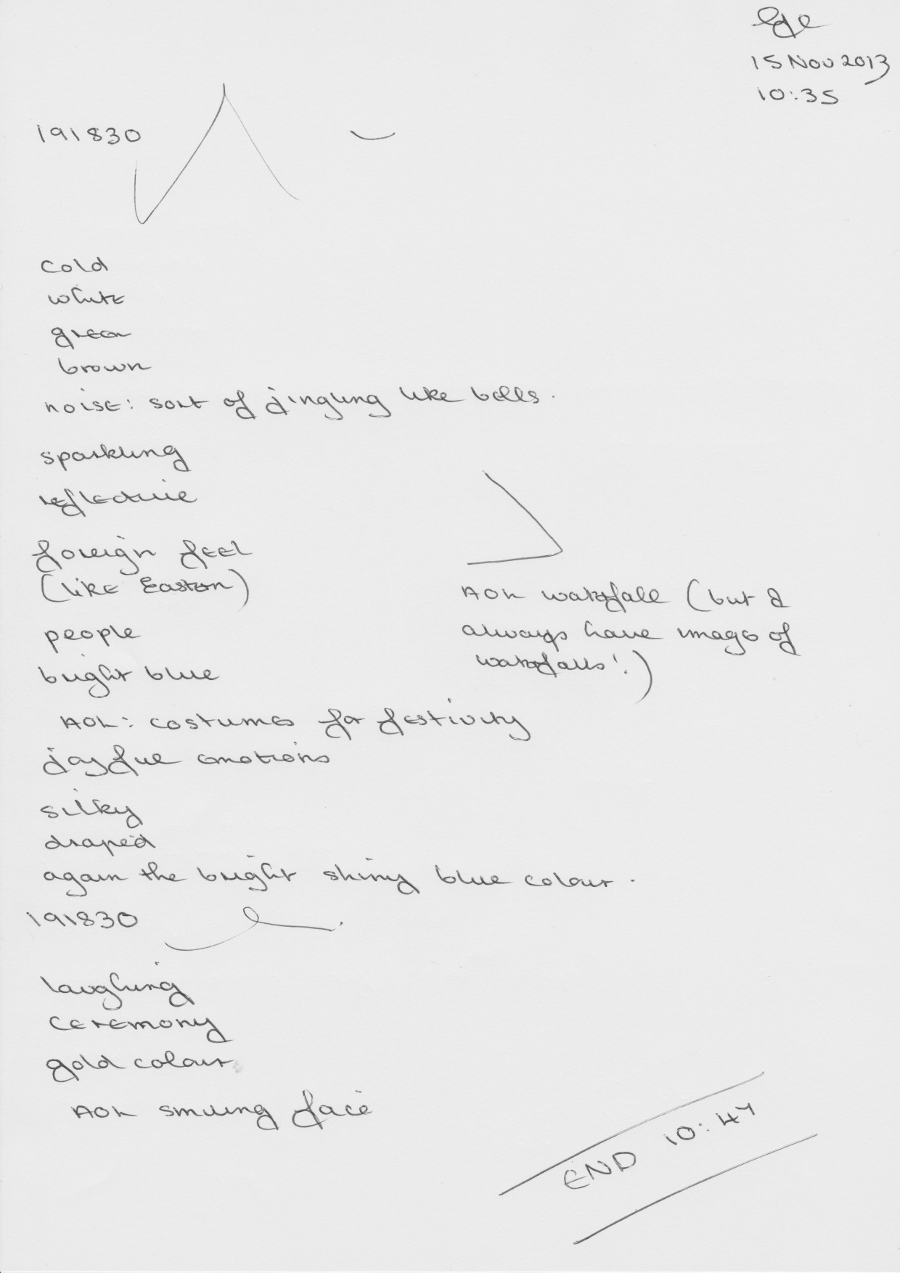 15 Nov 2013
10:35
191830
cold
white
green
brown
noise: sort of jingling like bells.
sparkling
reflective
foreign feel
(like Eastern)
AOL waterfall (but I
always have image of
waterfalls!)
people
bright blue
AOL: costumes for festivity
joyful emotions
silky
draped
again the bright shiny blue colour.
191830
laughing
ceremony
gold colour
AOL smiling face
END 10:47